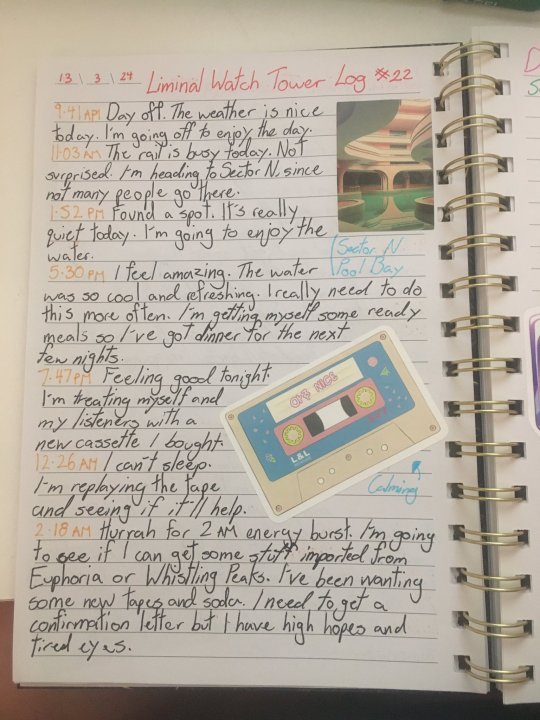 13 \ 3 \ 24 Liminal Watch Tower Log #22
9:41 AM Day off. The weather is nice
today. I'm going off to enjoy the day.
11:03 AM The rail is busy today. Not
surprised. I'm heading to Sector N since
not many people go there.
1:52 PM Found a spot. It's really
quiet today. I'm going to enjoy the
water.
Sector N
Pool Bay
5:30 PM I feel amazing. The water
was so cool and refreshing. I really need to do
this more often. I'm getting myself some ready
meals so I've got dinner for the next
few nights.
7:47 PM Feeling good tonight.
I'm treating myself and
my listeners with a
new cassette I bought.
NICE
L&L
Calming
12:26 AM I can't sleep.
I'm replaying the tape
and seeing if it'll help.
2:18 AM Hurrah for 2 AM energy burst. I'm going
to see if I can get some stuff imported from
Euphoria or Whistling Peaks. I've been wanting
some new tapes and soda. I need to get a
confirmation letter but I have high hopes and
tired eyes.